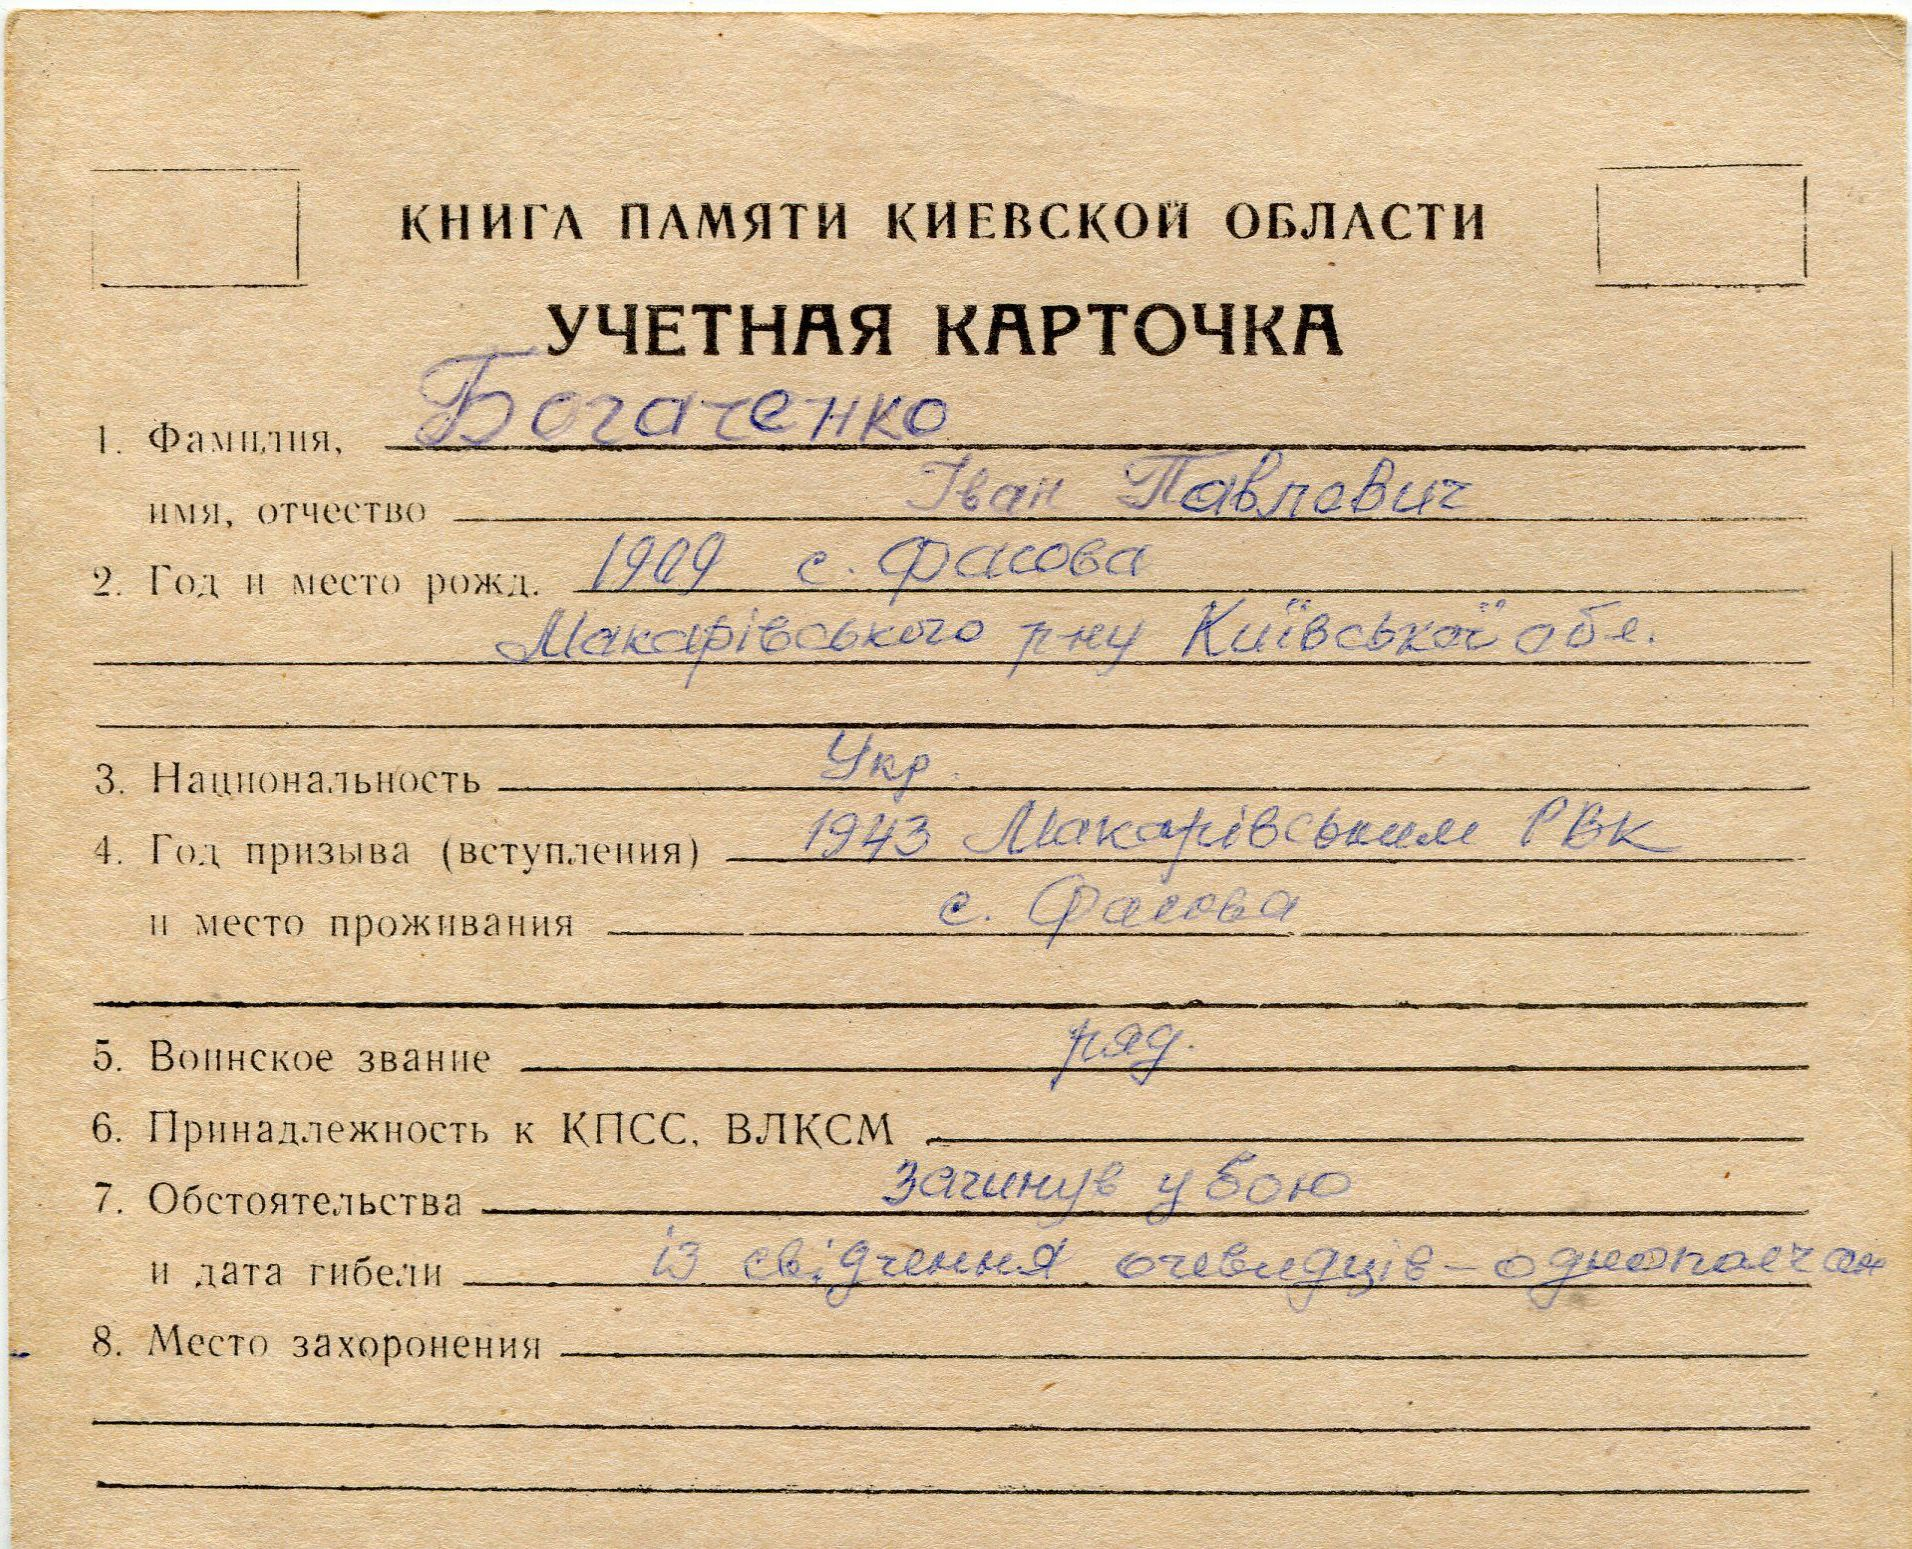 КНИГА ПАМЯТИ КИЕВСКОЙ ОБЛАСТИ
УЧЕТНАЯ КАРТОЧКА
1. Фамилия, Богаченко
имя, отчество Іван Павлович
2. Год и место рожд. 1909 с. Фасова
Макарівського р-ну Київської обл.
3. Национальность Укр.
4. Год призыва (вступления) 1943 Макарівським РВК
и место проживания с. Фасова
5. Воинское звание ряд.
6. Принадлежность к КПСС, ВЛКСМ
7. Обстоятельства загинув у бою
и дата гибели із свідчення очевидців – однополчан
8. Место захоронения